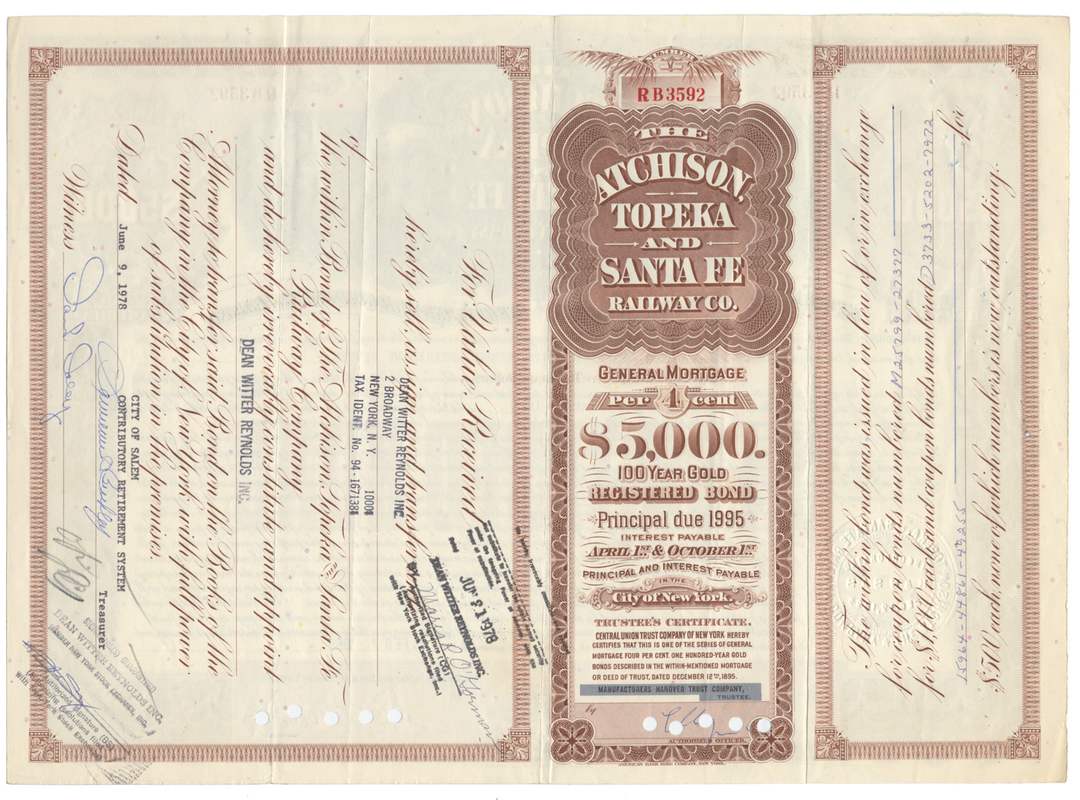 NUMBER
RB3592
THE
ATCHISON,
TOPEKA
AND
SANTA FE
RAILWAY CO.
GENERAL MORTGAGE
Per 4 cent
$5,000.
100 YEAR GOLD
REGISTERED BOND
Principal due 1995
INTEREST PAYABLE
APRIL 1ST & OCTOBER 1ST
PRINCIPAL AND INTEREST PAYABLE
IN THE
City of New York.
TRUSTEE'S CERTIFICATE.
CENTRAL UNION TRUST COMPANY OF NEW YORK HEREBY
CERTIFIES THAT THIS IS ONE OF THE SERIES OF GENERAL
MORTGAGE FOUR PER CENT. ONE HUNDRED-YEAR GOLD
BONDS DESCRIBED IN THE WITHIN-MENTIONED MORTGAGE
OR DEED OF TRUST, DATED DECEMBER 12TH, 1895.
MANUFACTURERS HANOVER TRUST COMPANY,
TRUSTEE.
by
AUTHORIZED OFFICER.
AMERICAN BANK NOTE COMPANY, NEW YORK.
The within bond was issued in lieu of or in exchange
for coupon bonds numbered M25299-27377
for $1000 each, and coupon bonds numbered D3733-5202-7972
15964-44861-48255 for
$500 each, and said numbers hereon is outstanding.
For Value Received
hereby sell, assign and transfer to
DEAN WITTER REYNOLDS INC.
2 BROADWAY
NEW YORK, N. Y. 10004
TAX IDENT. No. 94-1671384
of
the within Bond of The Atchison, Topeka and Santa Fe
Railway Company,
and do hereby irrevocably constitute and appoint
DEAN WITTER REYNOLDS INC.
Attorney to transfer said Bond on the Books of the said
Company in the City of New York, with full power
of substitution in the premises.
Dated June 9, 1978
CITY OF SALEM
CONTRIBUTORY RETIREMENT SYSTEM
Treasurer
Witness
DEAN WITTER REYNOLDS INC.
DEAN WITTER REYNOLDS INC.